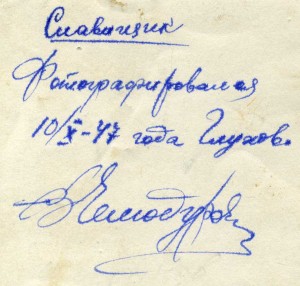 Славищик
Фотографировался
10/X-47 года Глухов.